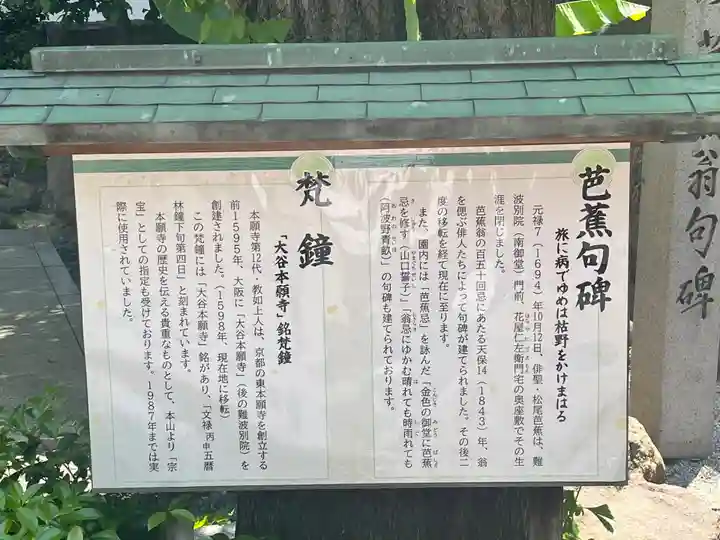 芭蕉句碑
旅に病でゆめは枯野をかけまはる
元禄7(1694)年10月12日、俳聖・松尾芭蕉は、難
波別院(南御堂)門前、花屋仁左衛門宅の奥座敷でその生
涯を閉じました。
芭蕉翁の百五十回忌にあたる天保14(1843)年、翁
を偲ぶ俳人たちによって句碑が建てられました。その後二
度の移転を経て現在に至ります。
また、園内には「芭蕉忌」を詠んだ「金色の御堂に芭蕉
忌を修す」(山口誓子)」「翁忌にゆかむ晴れても時雨れても
(阿波野青畝)」の句碑も建てられております。
梵鐘
「大谷本願寺」銘梵鐘
本願寺第12代、教如上人は、京都の東本願寺を創立する
前1595年、大阪に「大谷本願寺」(後の難波別院)を
創建されました。(1598年、現在地に移転)
この梵鐘には「大谷本願寺」銘があり、「文禄丙申五暦
林鐘下旬第四日」と刻まれています。
本願寺の歴史を伝える貴重なものとして、本山より「宗
宝」としての指定も受けております。1987年までは実
際に使用されていました。
翁句碑